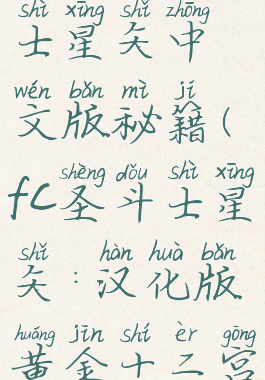 shì xīng shǐ zhōng
士星矢中
wén bǎn mì jí
文版秘籍(
shèng dǒu shì xīng
fc圣斗士星
shǐ hàn huà bǎn
矢:汉化版
huáng jīn shí èr gōng
黄金十二宫